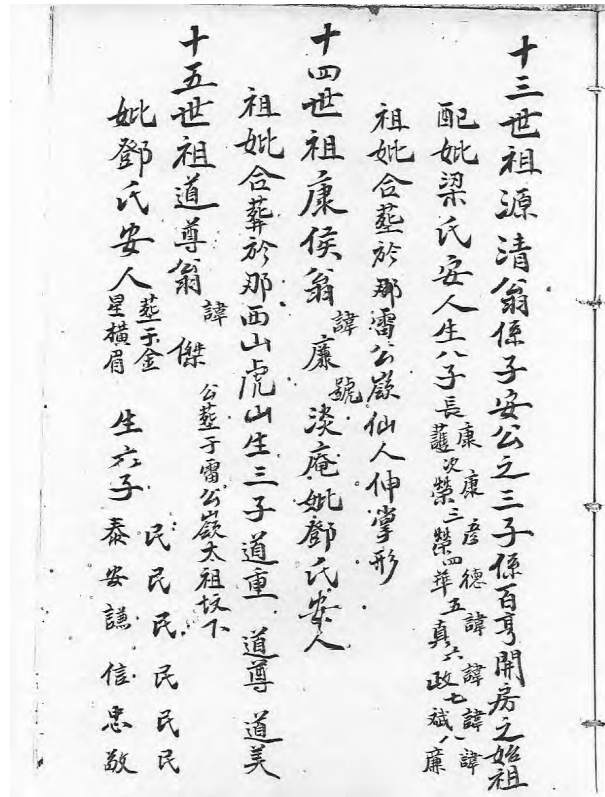 十三世祖源清翁係子安公之三子係百亨開房之始祖
配妣梁氏安人生八子長康護次康榮三彦榮四德華五諱真六諱政七諱斌八諱廉
祖妣合塟於那雷公嶺仙人伸掌形
十四世祖康侯翁諱廉號淡庵妣鄧氏安人
祖妣合葬於那西山虎山生三子道重 道尊 道美
十五世祖道尊翁諱傑公塟于雷公嶺太祖坟下
妣鄧氏安人塟于金星橫眉 生六子民泰 民安 民謙 民信 民忠 民敬